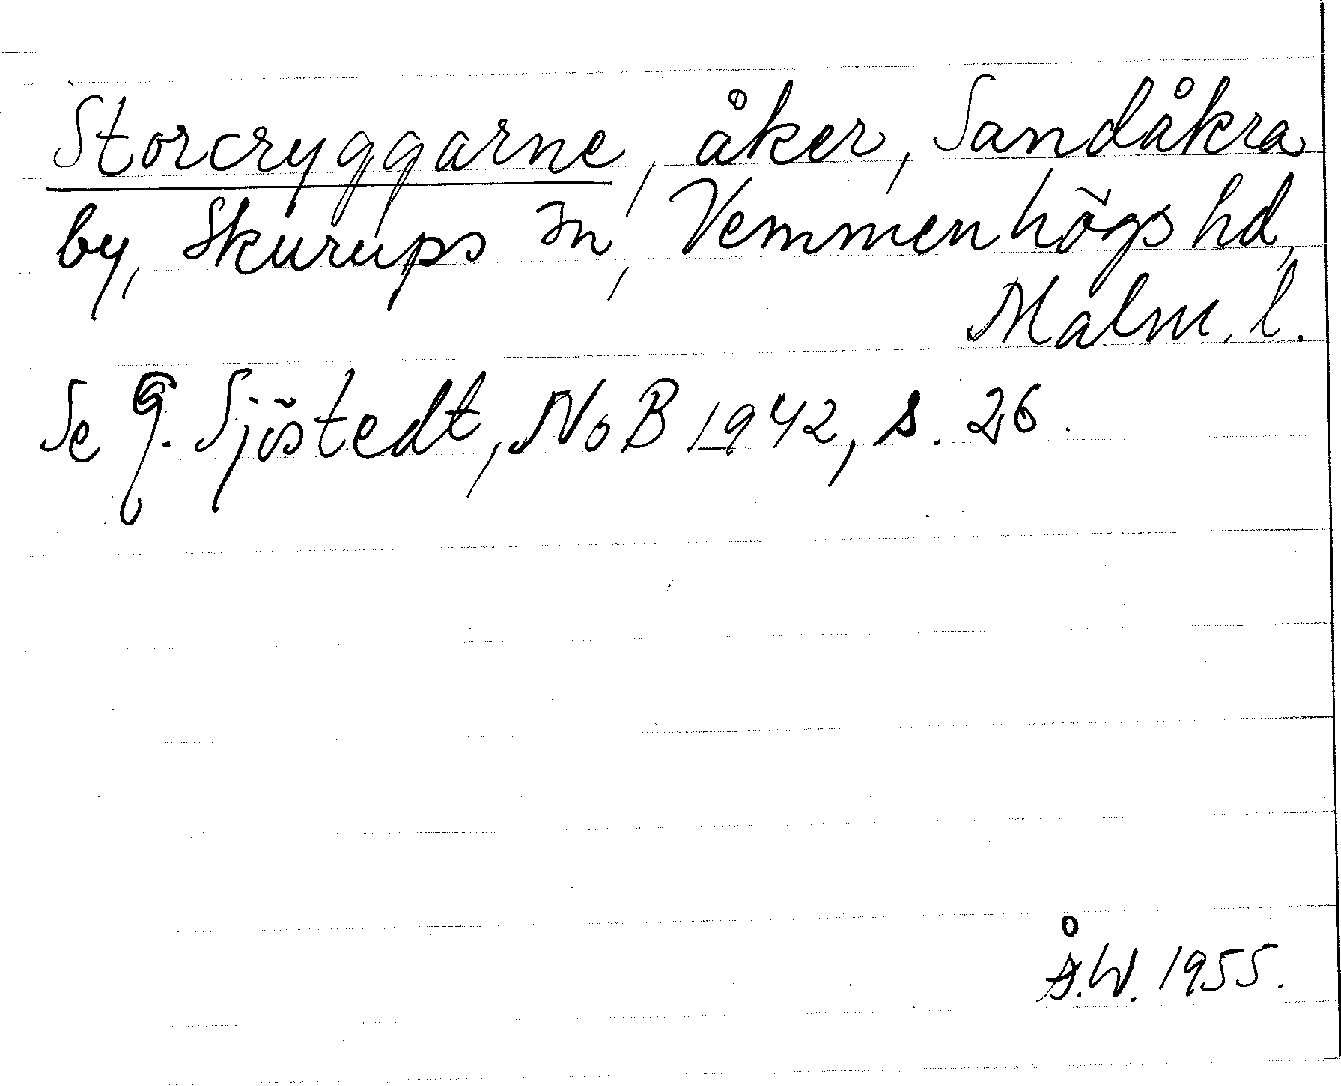 Storeryggarne, åker, Sandåkra
by, Skurups sn, Vemmenhögs hd,
Malm. l.
Se G. Sjöstedt, NoB 1942, s. 26.
Å.W. 1955.